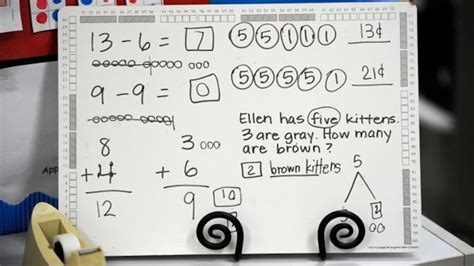 13 - 6 = 7
5 5 1 1 1 13¢
9 - 9 = 0
5 5 5 5 1 21¢
Ellen has five kittens.
3 are gray. How many
are brown?
2 brown kittens
8
+ 4
12
3
+ 6
9
10
5
2